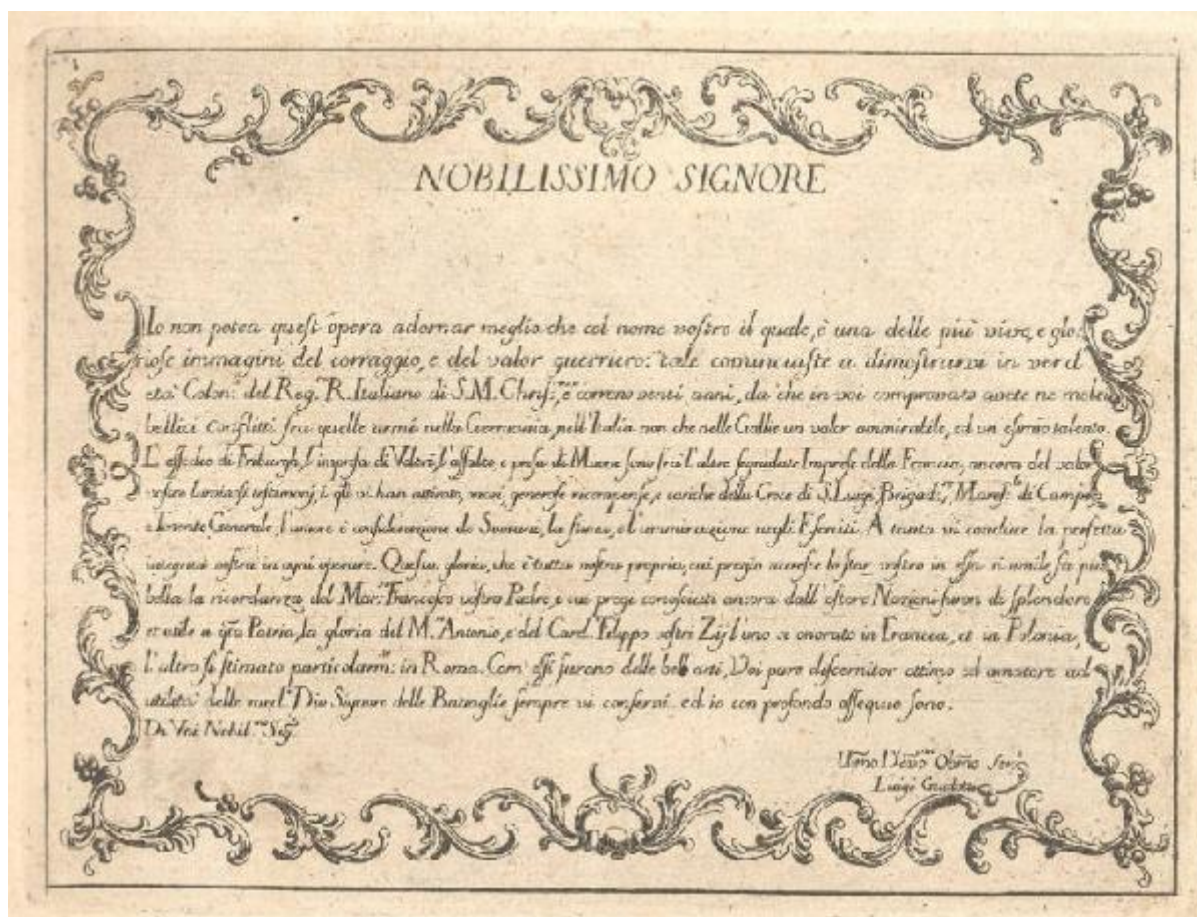 NOBILISSIMO SIGNORE
Io non potea quest' opera adornar meglio che col nome vostro il quale, è una delle più vive, e glo-
riose immagini del corraggio, e del valor guerriero: tale cominciaste a dimostrarvi in verd
età Colon: del Reg. R. Italiano di S. M. Chris. e correno venti anni, da che in voi comprovato avete ne molti
bellici conflitti fra quelle armi nella Germania, nell' Italia non che nelle Gallie un valor ammirabile, ed un esimio talento.
L' assedio di Friburgh, l' impresa di Valeri, l' assalto e presa di fra l' altre segnalate Imprese della Francia, ancora del valor
vostro testimonj, i gli vi han attirato, generose ricompense, e cariche della Croce di S. Luigi, Brigad. Maresc. di Campo,
e Tenente Generale, l' amore e considerazione de Sovrani, la stima, e l' ammirazione negli Eserciti. A tanto vi condure la perfetta
vostra in ogni operare. Questa gloria, che è tutta vostra propria, cui pregio accresce lo star vostro in essa si umile fa più
bella la ricordanza del Mar. Francesco vostro Padre, e cui pregi conosciuti ancora dall' estere Nazioni furon di splendore
et utile a qta Patria, la gloria del M. Antonio, e del Card. Filippo vostri Zij l' uno si onorato in Francia, et in Polonia,
l' altro si stimato particolarm: in Roma. Com' essi furono delle bell' arti, Voi pure discernitor ottimo ed amatore
delle Dio Signore delle Battaglie sempre vi conservi ed io con profondo ossequio sono.
Di Voi Nobil. Sig.
Umo Devo Obmo Serv
Luigi